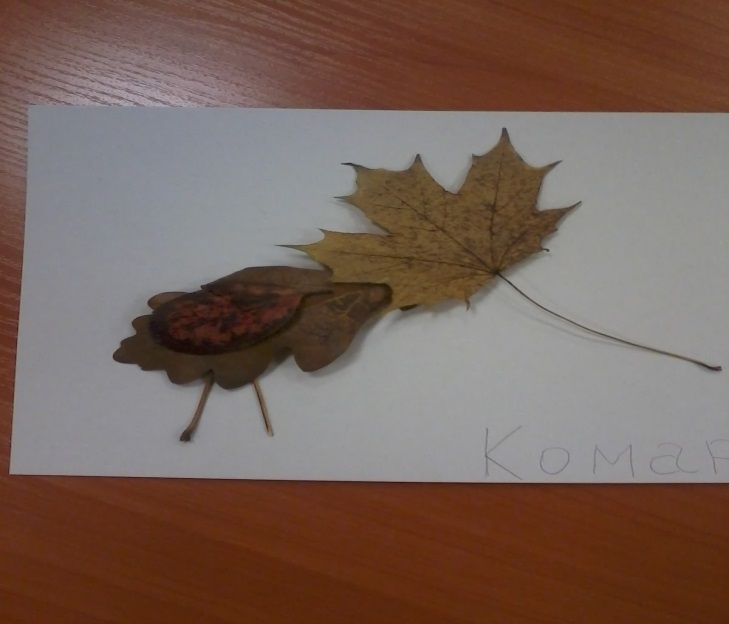 Комар